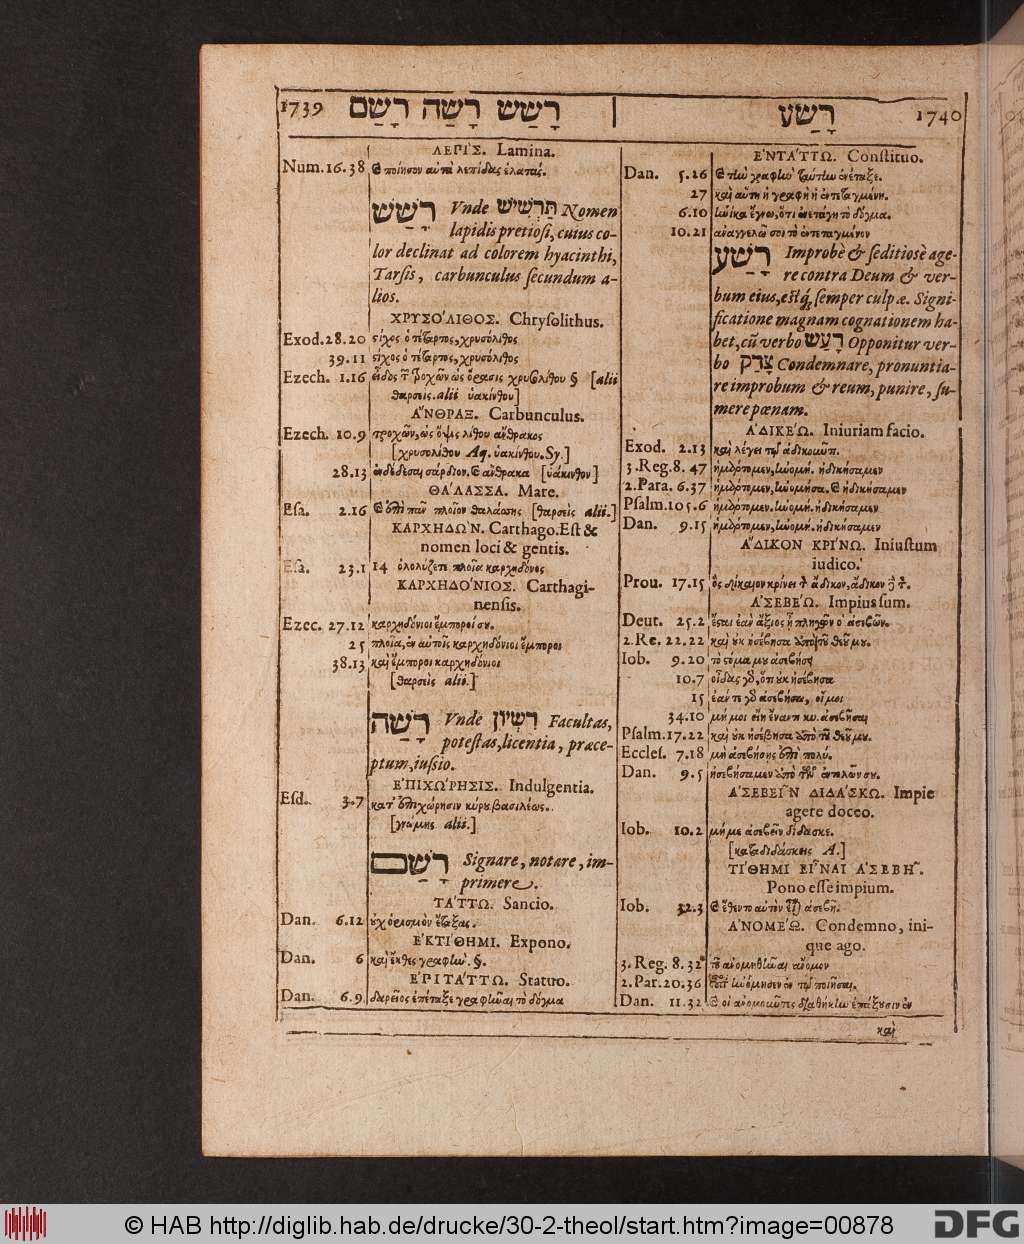 1739 רָשַׁשׁ רָשָׁה רָשַׁם
ΛΕΠΙ´Σ. Lamina.
Num.16.38 ϗ ποίησον αὐτὰ λεπίδας ἐλατάς.
רָשַׁשׁ Vnde תַּרְשִׁישׁ Nomen
lapidis pretiosi, cuius co-
lor declinat ad colorem hyacinthi,
Tarsis, carbunculus secundum a-
lios.
ΧΡΥΣΟ´ΛΙΘΟΣ. Chrysolithus.
Exod.28.20 ςίχος ὁ τέταρτος, χρυσόλιθος
39.11 ςίχος ὁ τέταρτος, χρυσόλιθος
Ezech. 1.16 εἶδος τ̃ τροχῶν ὡς ὅρασις χρυσολίθου § [alii
θαρσεὶς. alii ὑακίνθου]
Α῎ΝΘΡΑΞ. Carbunculus.
Ezech. 10.9 τροχῶν, ὡς ὄψις λίθου ἄνθρακος
[χρυσολίθου Aq. ὑακίνθου. Sy.]
28.13 ἐνδέδεσαι σάρδιον. ϗ ἄνθρακα [ὑάκινθον]
ΘΑ´ΛΑΣΣΑ. Mare.
Esa. 2.16 ϗ ἐπὶ πᾶν πλοῖον θαλάσσης [θαρσεὶς alii.]
ΚΑΡΧΗΔΩ´Ν. Carthago. Est &
nomen loci & gentis.
Esa. 23.1 14 ὀλολύζετε πλοῖα καρχηδόνος
ΚΑΡΧΗΔΟ´ΝΙΟΣ. Carthagi-
nensis.
Ezec. 27.12 καρχηδόνιοι ἔμποροί σου.
25 πλοῖα, ἐν αὐτοῖς καρχηδόνιοι ἔμποροι
38.13 καὶ ἔμποροι καρχηδόνιοι
[θαρσεὶς alii.]
רָשָׁה Vnde רִשְׁיוֹן Facultas,
potestas, licentia, præce-
ptum, iussio.
Ε᾿ΠΙΧΩ´ΡΗΣΙΣ. Indulgentia.
Esd. 3.7 κατ᾿ ἐπιχώρησιν κύρου βασιλέως.
[γνώμης alii.]
רָשַׁם Signare, notare, im-
primere.
ΤΑ´ΤΤΩ. Sancio.
Dan. 6.12 οὐχ ὁρισμὸν ἔταξας.
Ε᾿ΚΤΙ´ΘΗΜΙ. Expono.
Dan. 6 καὶ ἔκθες γραφὴν. §.
Ε᾿ΠΙΤΑ´ΤΤΩ. Statuo.
Dan. 6.9. δαρεῖος ἐπέταξε γραφῆναι τὸ δόγμα
רָשַׁע 1740
Ε᾿ΝΤΑ´ΤΤΩ. Constituo.
Dan. 5.26 ϗ τὴν γραφὴν ταύτην ἐνέταξε.
27 καὶ αὕτη ἡ γραφὴ ἡ ἐντεταγμένη.
6.10 ἡνίκα ἔγνω, ὅτι ἐνετάγη τὸ δόγμα.
10.21 ἀναγγελῶ σοι τὸ ἐντεταγμένον
רָשַׁע Improbè & seditiosè age-
re contra Deum & ver-
bum eius, estq́; semper culpæ. Signi-
ficatione magnam cognationem ha-
bet, cũ verbo רָעַשׁ Opponitur ver-
bo צָדַק Condemnare, pronuntia-
re improbum & reum, punire, su-
mere pœnam.
Α᾿ΔΙΚΕ´Ω. Iniuriam facio.
Exod. 2.13 καὶ λέγει τῷ ἀδικοῦντι.
3.Reg.8. 47 ἡμάρτομεν, ἠνομή. ἠδικήσαμεν
2.Para. 6.37 ἡμάρτομεν, ἠνομήσα. ϗ ἠδικήσαμεν
Psalm.105.6 ἡμάρτομεν. ἠνομή. ἠδικήσαμεν
Dan. 9.15 ἡμάρτομεν, ἠνομή. ἠδικήσαμεν
Α῎ΔΙΚΟΝ ΚΡΙ´ΝΩ. Iniustum
iudico.
Prou. 17.15 ὃς δίκαιον κρίνει τ̀ ἄδικον, ἄδικον δὲ τ̀.
Α᾿ΣΕΒΕ´Ω. Impius sum.
Deut. 25.2 ἔσται ἐὰν ἄξιος ᾖ πληγῶν ὁ ἀσεβῶν.
2.Re. 22.22 καὶ οὐκ ἠσέβησα ἀπὸ τοῦ θεοῦ μου.
Iob. 9.20 τὸ στόμα μου ἀσεβήσει
10.7 οἶδας γὰρ, ὅτι οὐκ ἠσέβησα
15 ἐάν τε γὰρ ἀσεβήσω, οἴμοι
34.10 μή μοι εἴη ἔναντι κυ. ἀσεβῆσαι
Psalm.17.22 καὶ οὐκ ἠσέβησα ἀπὸ τοῦ θεοῦ μου.
Eccles. 7.18 μὴ ἀσεβήσῃς ἐπὶ πολύ.
Dan. 9.5 ἠσεβήσαμεν ἀπὸ τῶν ἐντολῶν σου.
Α᾿ΣΕΒΕΙ῀Ν ΔΙΔΑ´ΣΚΩ. Impie
agere doceo.
Iob. 10.2 μή με ἀσεβεῖν δίδασκε.
[καταδιδάσκεις A.]
ΤΙ´ΘΗΜΙ ΕΙ῏ΝΑΙ Α᾿ΣΕΒΗ῀.
Pono esse impium.
Iob. 32.3 ϗ ἔθεντο αὐτὸν εἶναι ἀσεβῆ.
Α᾿ΝΟΜΕ´Ω. Condemno, ini-
que ago.
3. Reg. 8.32 τοῦ ἀνομηθῆναι ἄνομον
2.Par.20.36 ἠνόμησεν ἐν τῷ ποιῆσαι.
Dan. 11.32 ϗ οἱ ἀνομοῦντες διαθήκην ἐπάξουσιν ἐν
καὶ
© HAB http://diglib.hab.de/drucke/30-2-theol/start.htm?image=00878
DFG